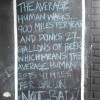 THE AVERAGE
HUMAN WALKS
900 MILES PER YEAR
AND DRINKS 27
GALLONS OF BEER
WHICH MEANS THE
AVERAGE HUMAN
GETS 41 MILES
PER GALLON
NOT BAD